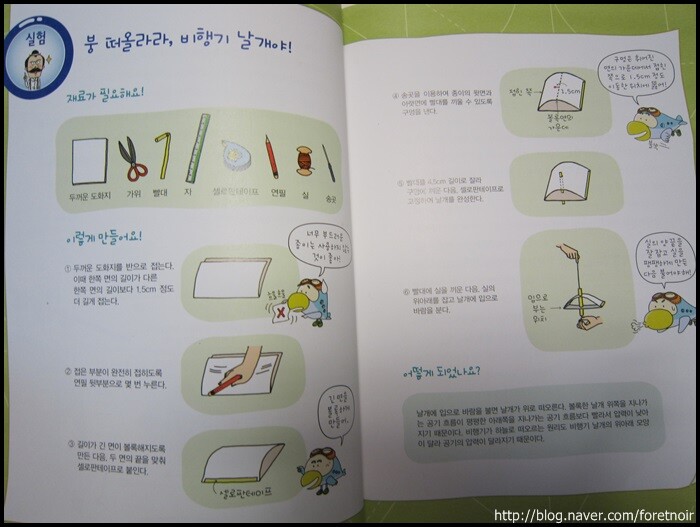 실험
붕 떠올라라, 비행기 날개야!
재료가 필요해요!
두꺼운 도화지
가위
빨대
자
셀로판테이프
연필
실
송곳
이렇게 만들어요!
① 두꺼운 도화지를 반으로 접는다.
이때 한쪽 면의 길이가 다른
한쪽 면의 길이보다 1.5cm 정도
더 길게 접는다.
너무 부드러운
종이는 사용하지 않는
것이 좋아!
② 접은 부분이 완전히 접히도록
연필 뒷부분으로 몇 번 누른다.
③ 길이가 긴 면이 볼록해지도록
만든 다음, 두 면의 끝을 맞춰
셀로판테이프로 붙인다.
긴 면을
볼록하게
만들어.
셀로판테이프
④ 송곳을 이용하여 종이의 윗면과
아랫면에 빨대를 끼울 수 있도록
구멍을 낸다.
접힌 쪽
1.5cm
볼록면의
가운데
구멍은 휘어진
면의 가운데에서 접힌
쪽으로 1.5cm 정도
이동한 위치에 뚫어!
⑤ 빨대를 4.5cm 길이로 잘라
구멍에 끼운 다음, 셀로판테이프로
고정하여 날개를 완성한다.
⑥ 빨대에 실을 끼운 다음, 실의
위아래를 잡고 날개에 입으로
바람을 분다.
입으로
부는
위치
실의 양 끝을
잘 잡고 실을
팽팽하게 만든
다음 불어야 해!
어떻게 되었나요?
날개에 입으로 바람을 불면 날개가 위로 떠오른다. 볼록한 날개 위쪽을 지나가
는 공기 흐름이 평평한 아래쪽을 지나가는 공기 흐름보다 빨라서 압력이 낮아
지기 때문이다. 비행기가 하늘로 떠오르는 원리도 비행기 날개의 위아래 모양
이 달라 공기의 압력이 달라지기 때문이다.
http://blog.naver.com/foretnoir